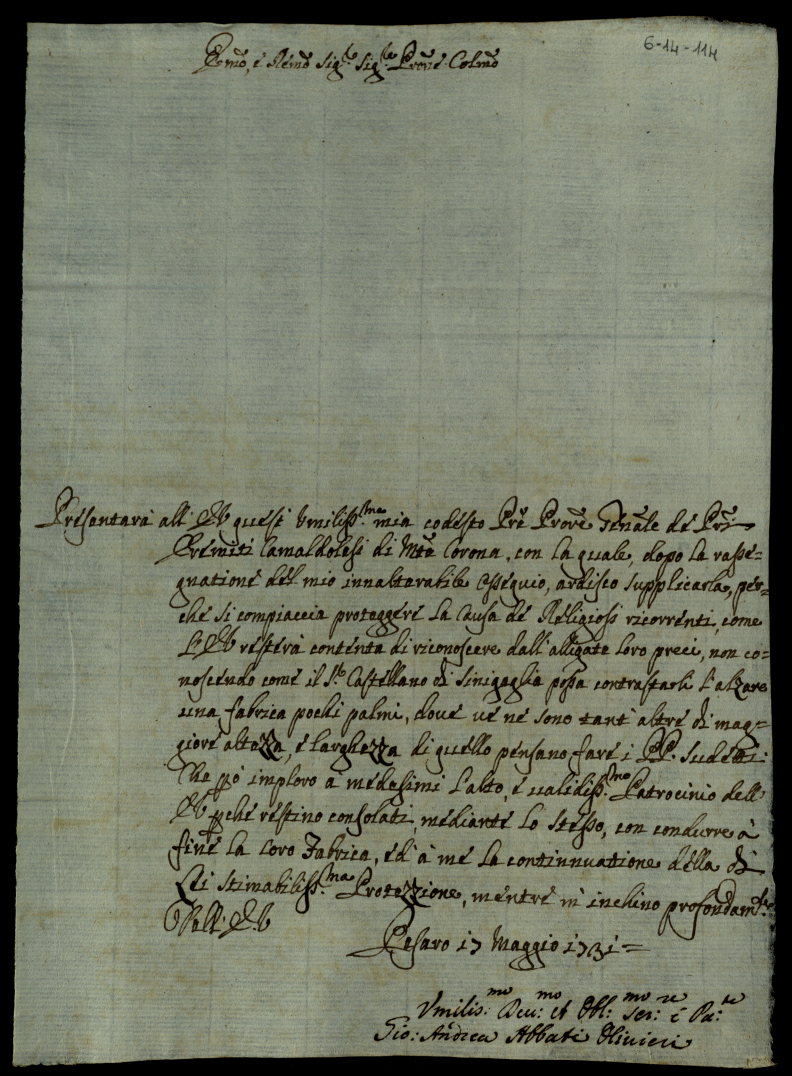 6-14-114
Emo, e Remo Sig.re Sig.re Prone Colmo
Presentarà all' E.V. questa Vmiliss.ma mia codesto Prẽ Proẽ Genãle de Prĩ
Eremiti Camaldolesi di Mte Corona, con la quale, dopo la rasse=
gnatione del mio innalterabile ossequio, ardisco supplicarla, per=
che si compiaccia proteggere la Causa de Religiosi ricorrenti, come
l'E.V. resterà contenta di riconoscere dall'alligate loro preci, non co=
noscendo come il S.r Castellano di Sinigaglia possa contrastarli l'alzare
una fabrica pochi palmi, doue ue ne sono tant'altre di mag=
giore altezza, e larghezza di quello pensano fare i PP. sudetti:
Che però imploro a medesimi l'alto, e ualidiss.mo Patrocinio dell'
E.V. pche restino consolati, mediante lo stesso, con condurre à
fine la loro Fabrica, ed à me la continnuatione della di
Lei Stimabiliss.ma Protezzione, mentre m'inchino profondam.te
Dell' E.V.
Pesaro i7 Maggio i73i=
Vmilis:mo Deu:mo et Obl:mo Ser:re e Pa:te
Gio: Andrea Abbati Oliuieri